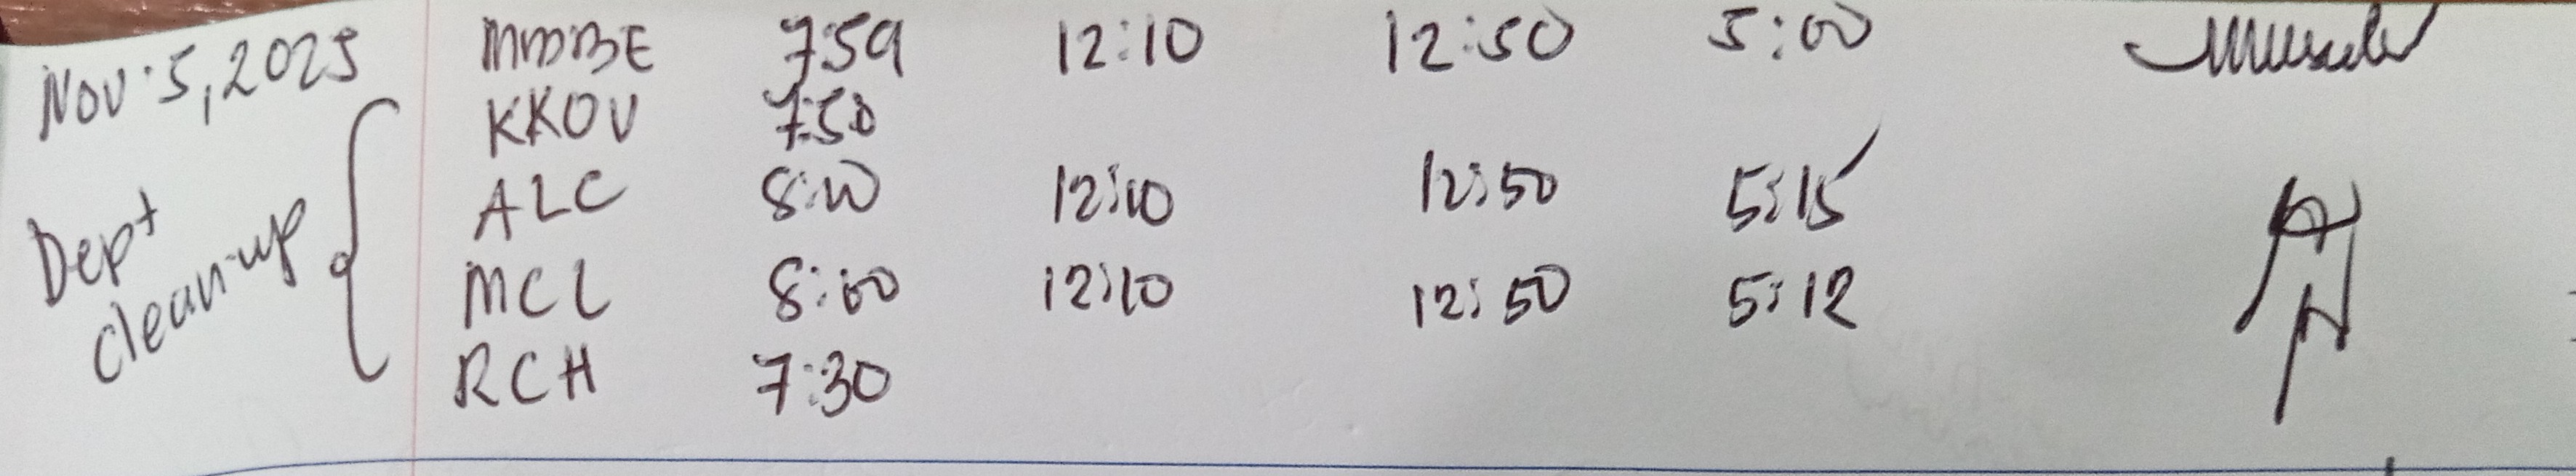 Nov. 5, 2025 MMBBE 7:59 12:10 12:50 5:00
KKOV 7:50
Dept ALC 8:00 12:10 12:50 5:15
clean-up MCL 8:00 12:10 12:50 5:12
RCH 7:30